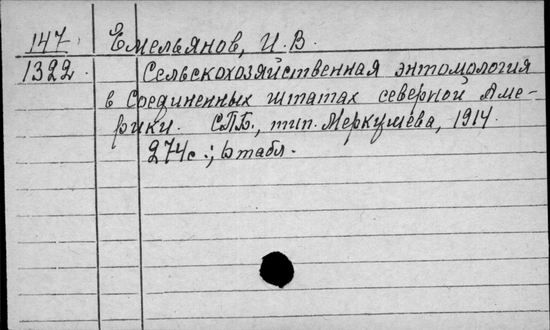 147. Емельянов, И. В.
1322. Сельскохозяйственная энтомология
в Соединенных штатах северной Аме-
рики. С.П.Б., тип. Меркушева, 1914.
274с.; 6 табл.